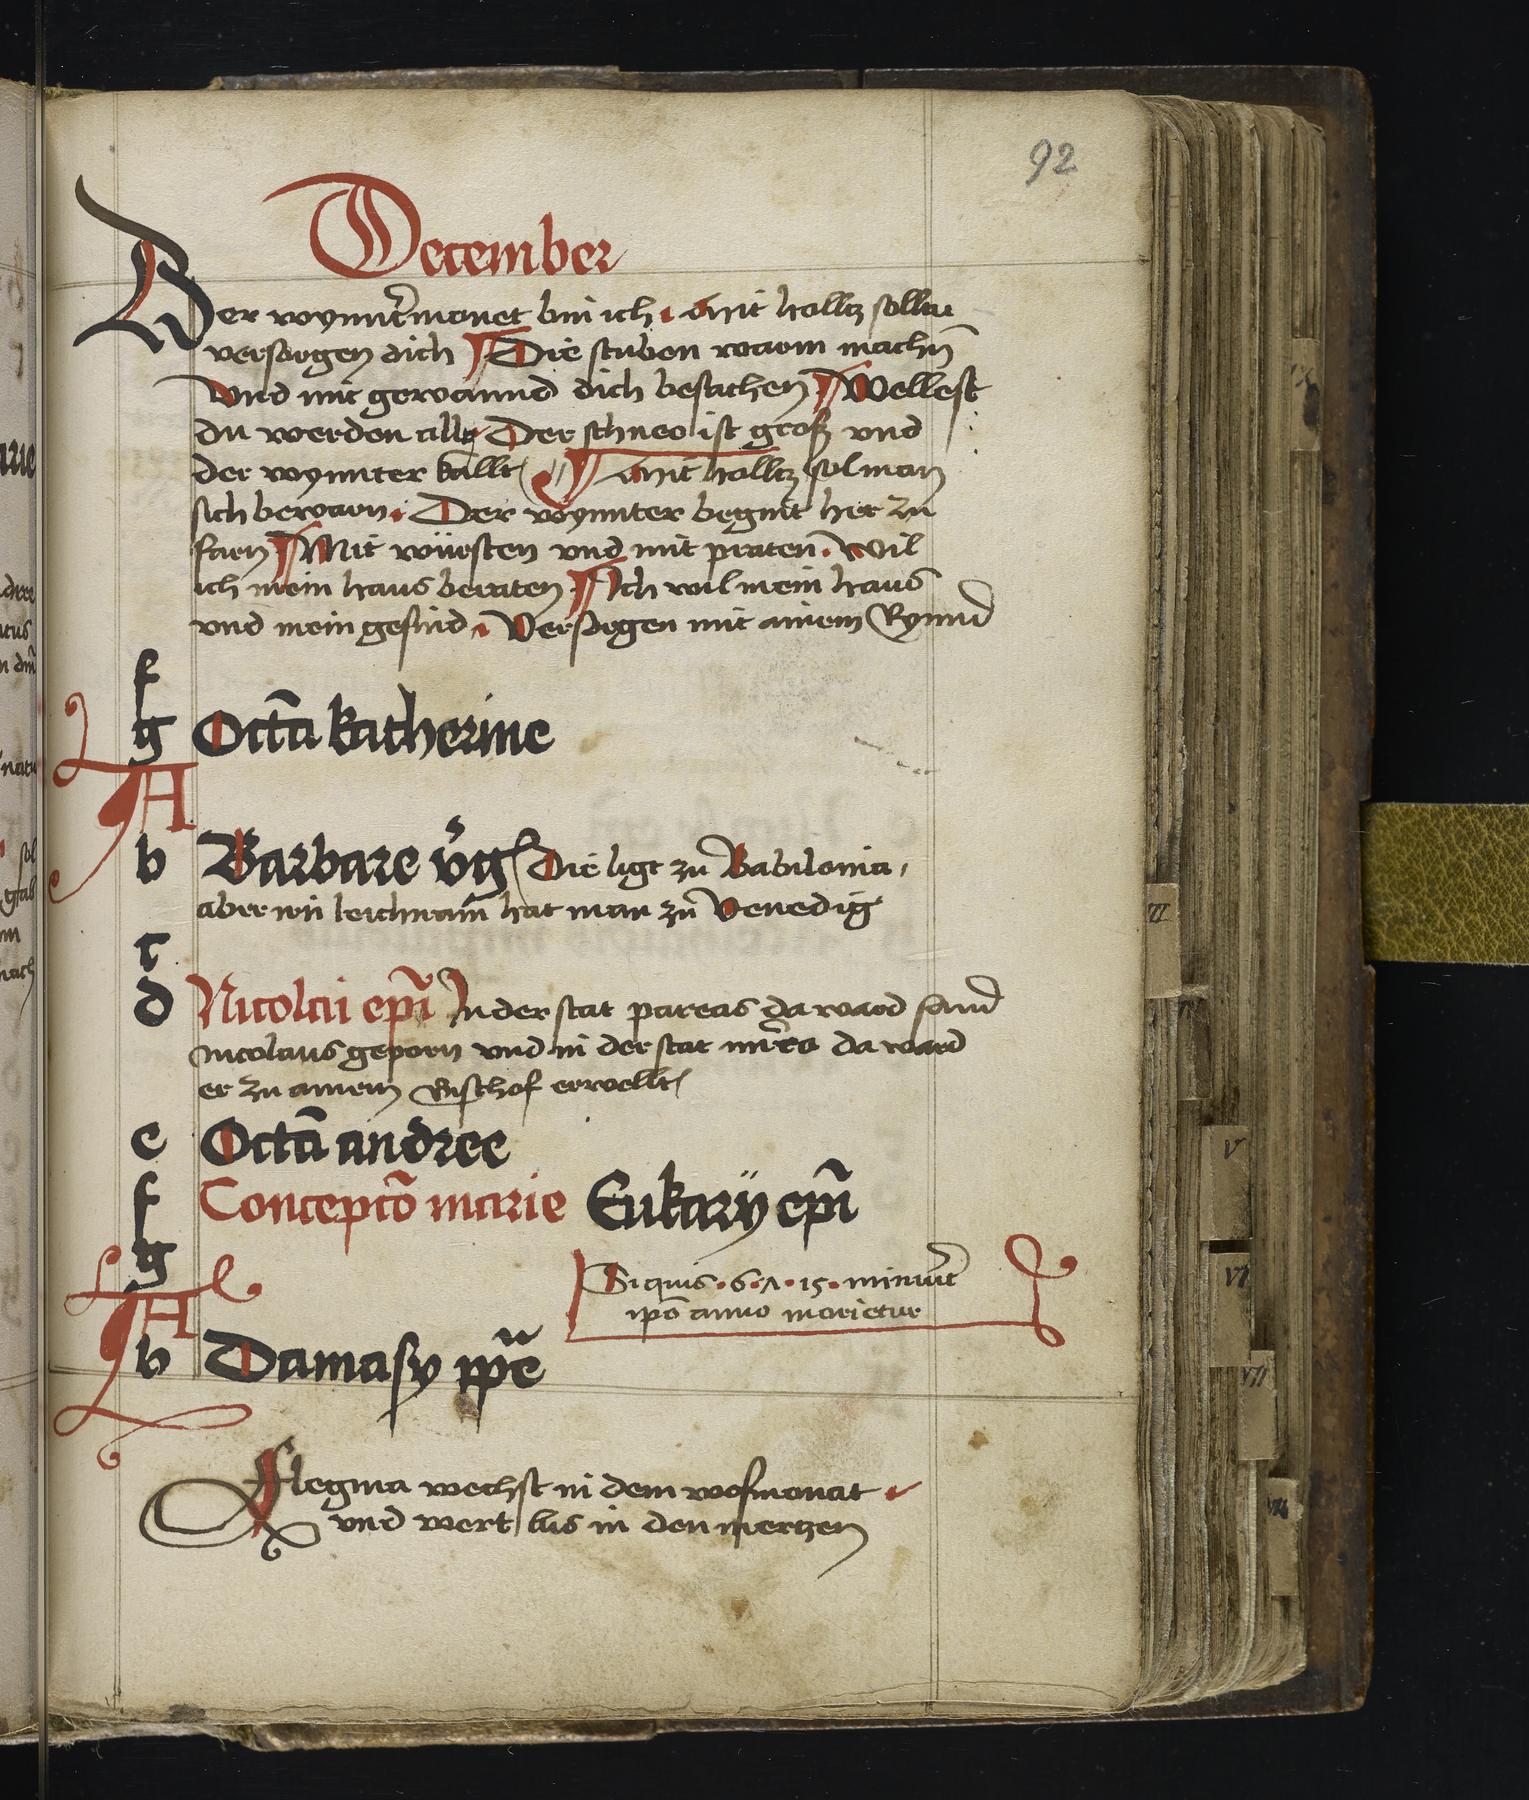 92
December
Der wynntermonet bin ich · mit holltz solltu
versorgen dich Die stuben warm machn̄
Vnd mit gewannd dich besachen Wellest
du werden allt Der schnee ist groß vnd
der wynnter kallt Mit holltz sol man
sich bewarn · Der wynnter begint her zu
farn Mit würsten vnd mit praten · Wil
ich mein haus beraten Ich wil mein haus
vnd mein gesind · Versorgen mit ainem Rynnd
f
g Octa᷑ katherine
A
b Barbare v̊g Die ligt zu Babilonia,
aber irn leichnam hat man zu Venedig
c
d Nicolai ep̄i In der stat pareas da ward sand
nicolaus geporn vnd in der stat mirea da ward
er zu ainem Bischof erwellt
e Octa᷑ andree
f Concepco᷑ marie Eukarÿ ep̄i
g
Si quis · 6 · 7 · 15 · minuit
A
ip̄o anno morietur
b Damasy pp̄e
Flegma wechst in dem wolfmonat
vnd wert bis in den mertzen
VII
V
VI
VII